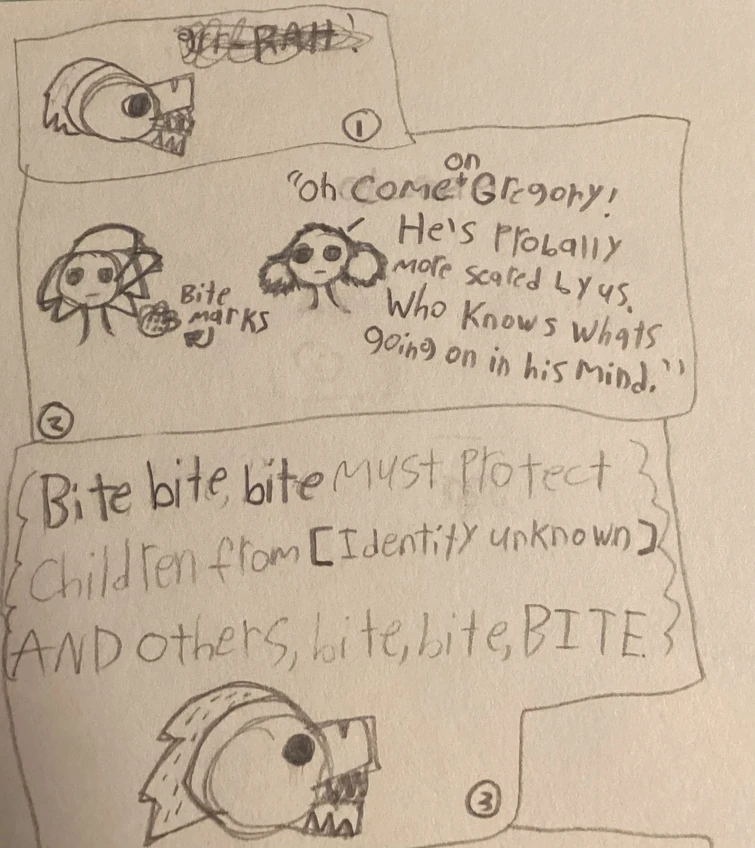 grr-RAH!
1
on
"Oh come Gregory!
He's probally
more scared by us.
Who knows whats
going on in his mind."
Bite
marks
2
Bite bite, bite Must Protect
Children from [Identity unknown]
AND others, bite, bite, BITE
3